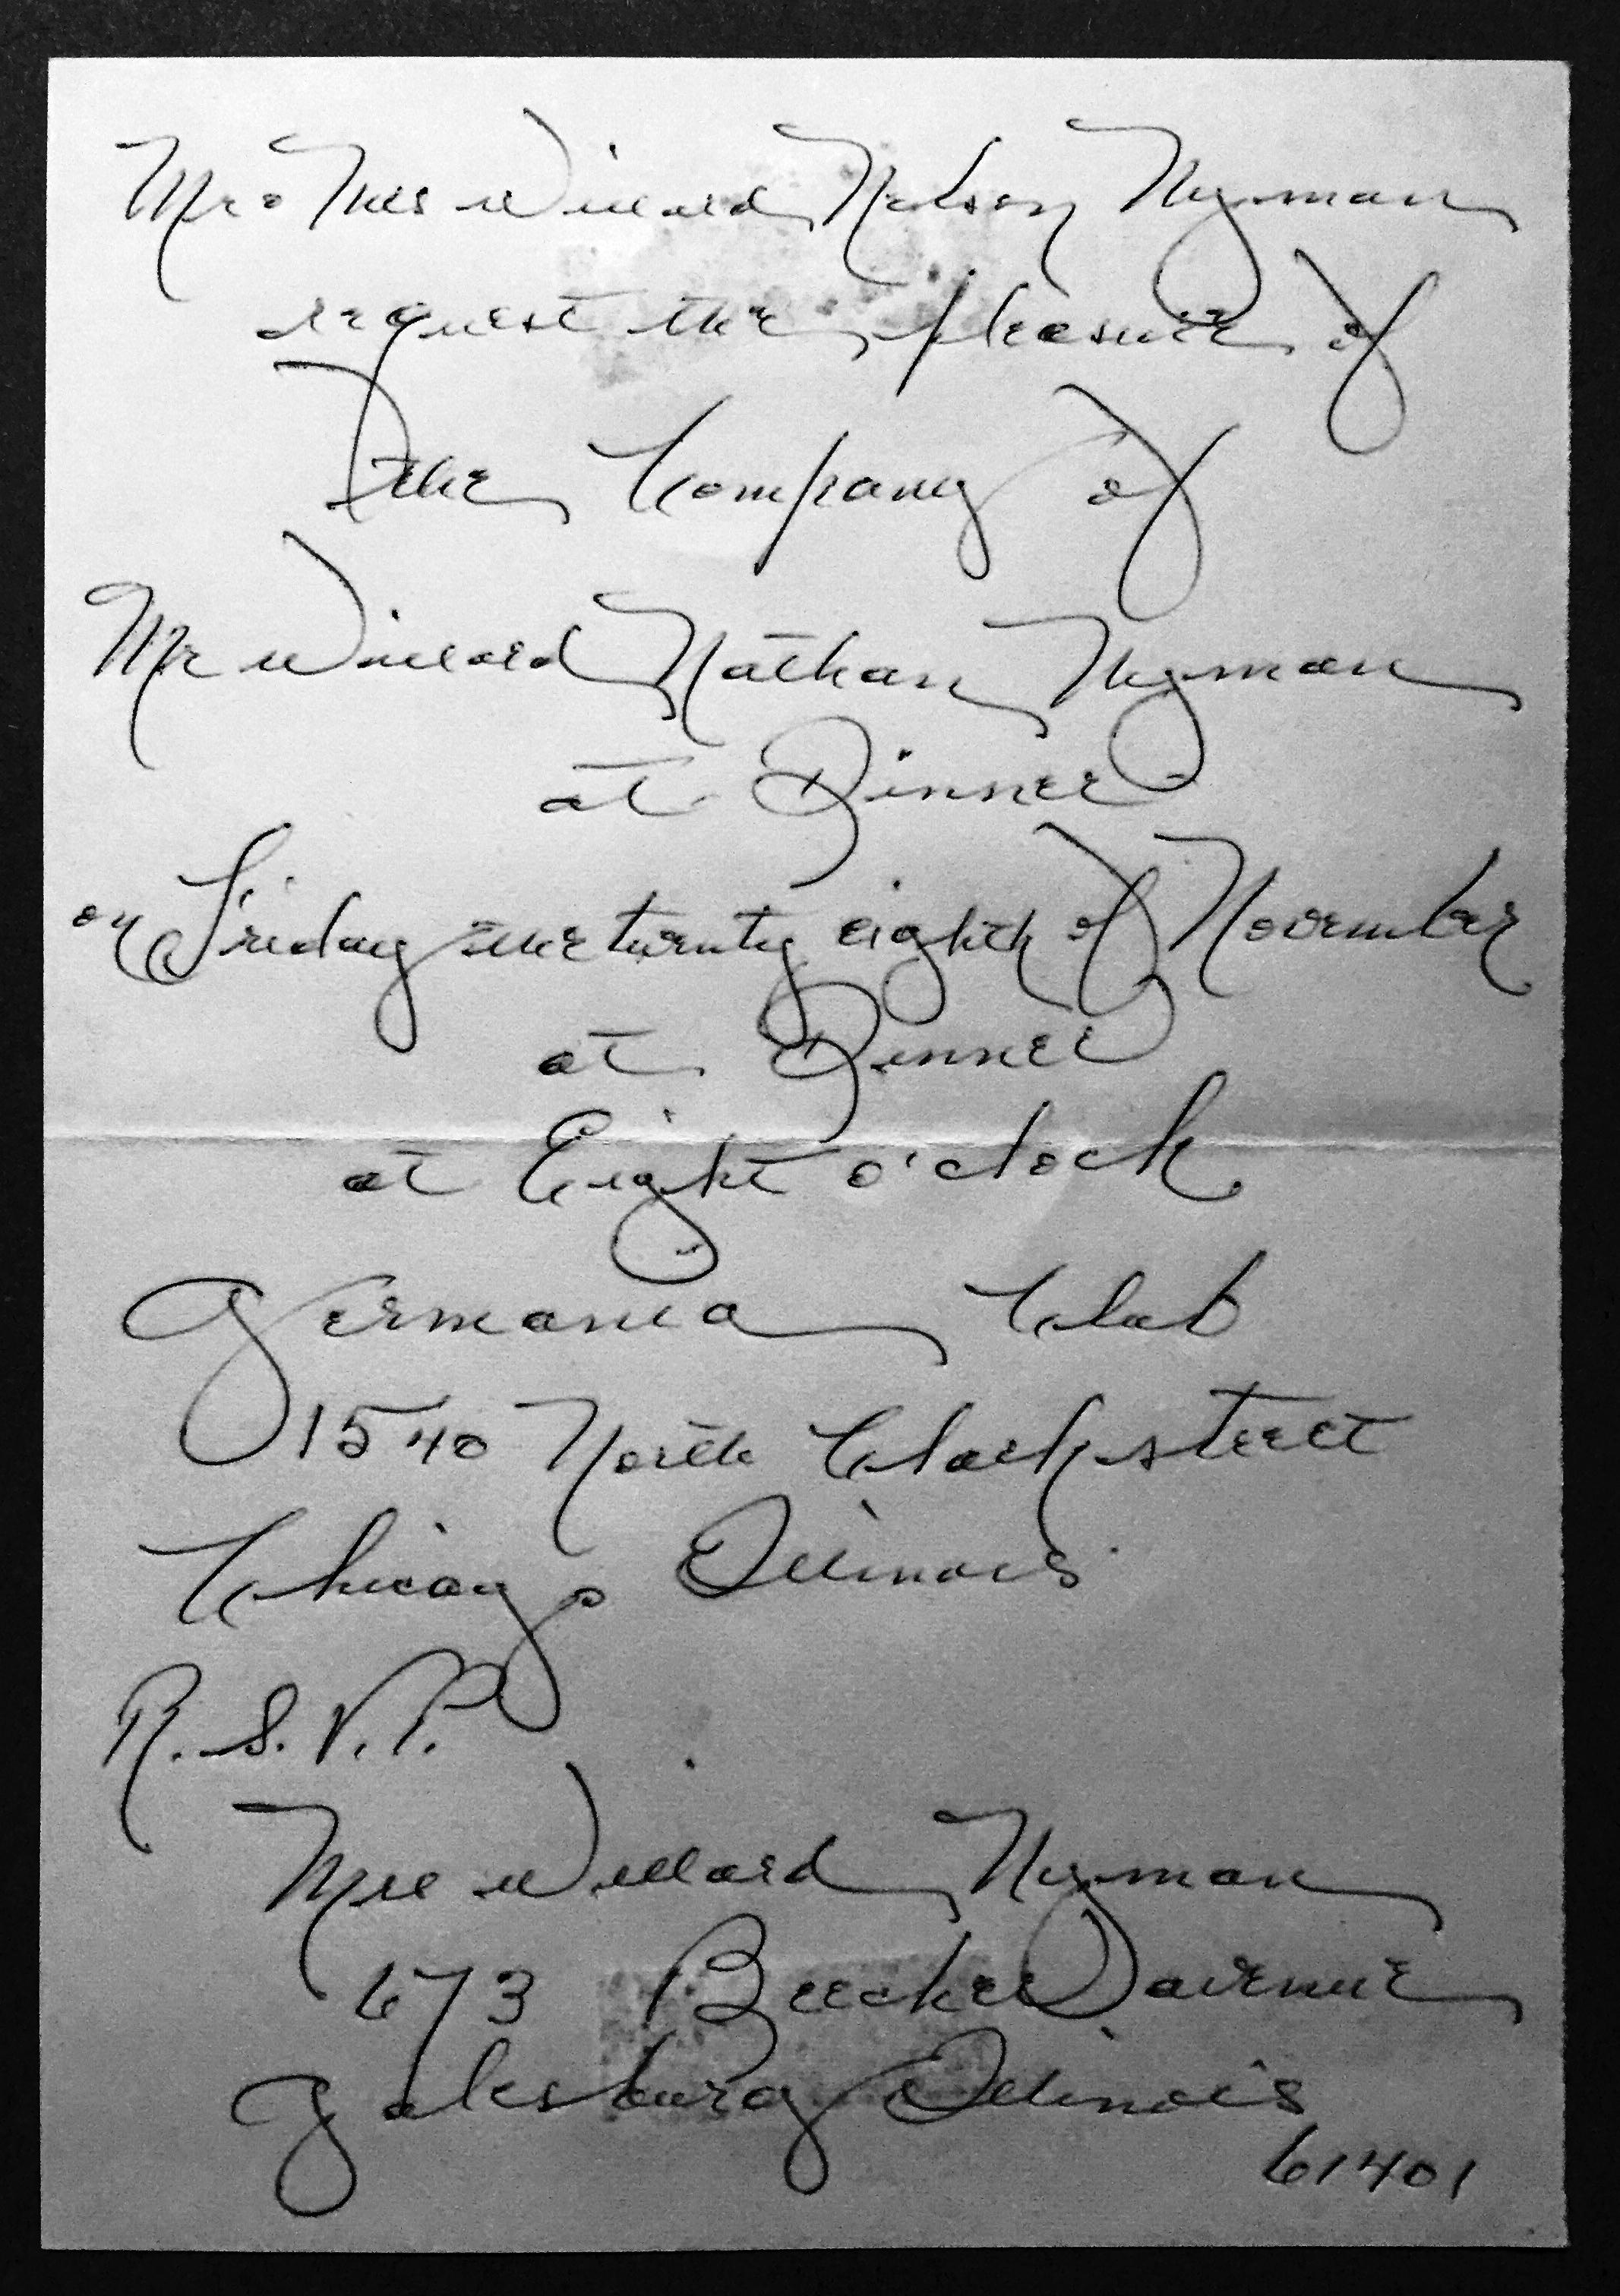 Mr & Mrs Willard Nelson Nyman
request the pleasure of
the Company of
Mr Willard Nathan Nyman
at Dinner
on Friday the twenty eighth of November
at Dinner
at Eight o'clock
Germania Club
1540 North Clark street
Chicago Illinois
R.S.V.P.
Mrs Willard Nyman
673 Beecher avenue
Galesburg Illinois
61401